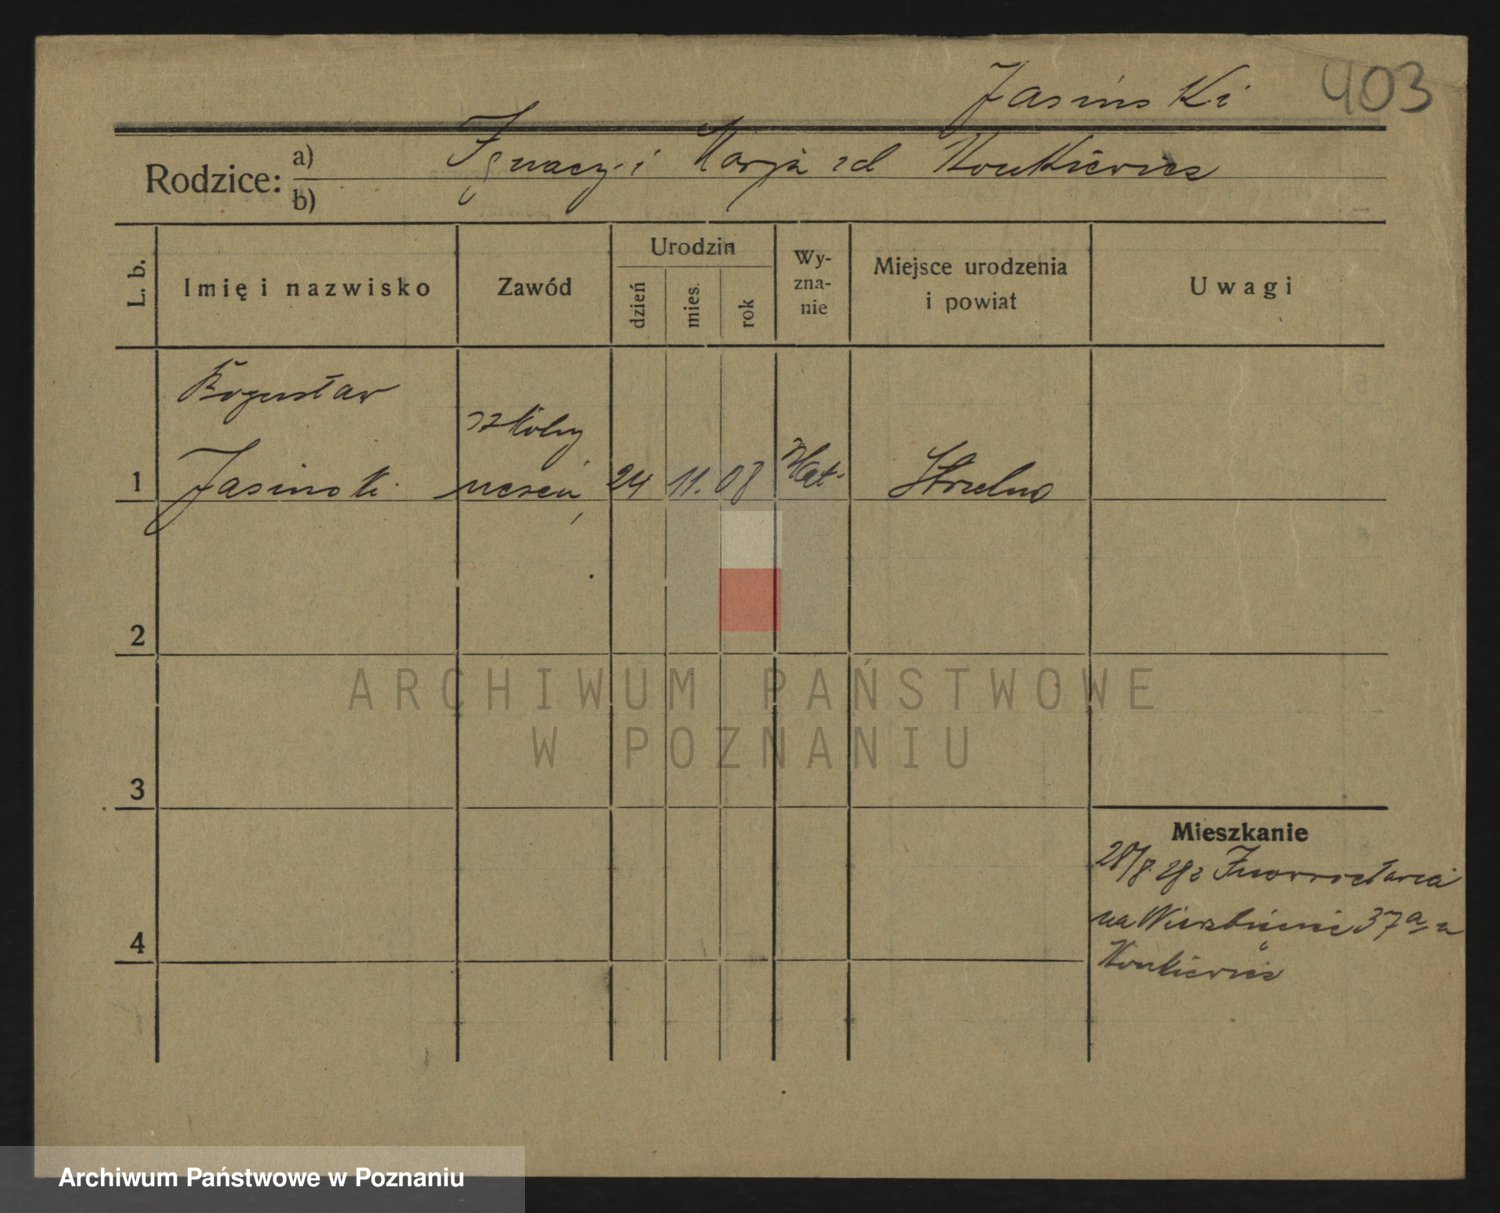 Jasinski 403
Rodzice: a) Ignacy i Marja zd Konkiewicz
b)
L. b.
Imię i nazwisko
Zawód
Urodzin
dzień
mies.
rok
Wy-
zna-
nie
Miejsce urodzenia
i powiat
Uwagi
Bogusław
szkolny
1 Jasinski uczeń 24 11. 08 kat. Strzelno
2
ARCHIWUM PAŃSTWOWE
W POZNANIU
3
Mieszkanie
28/8 z Inowrocławia
na Wierzbięcice 37a u
4
Konkiewicz
Archiwum Państwowe w Poznaniu